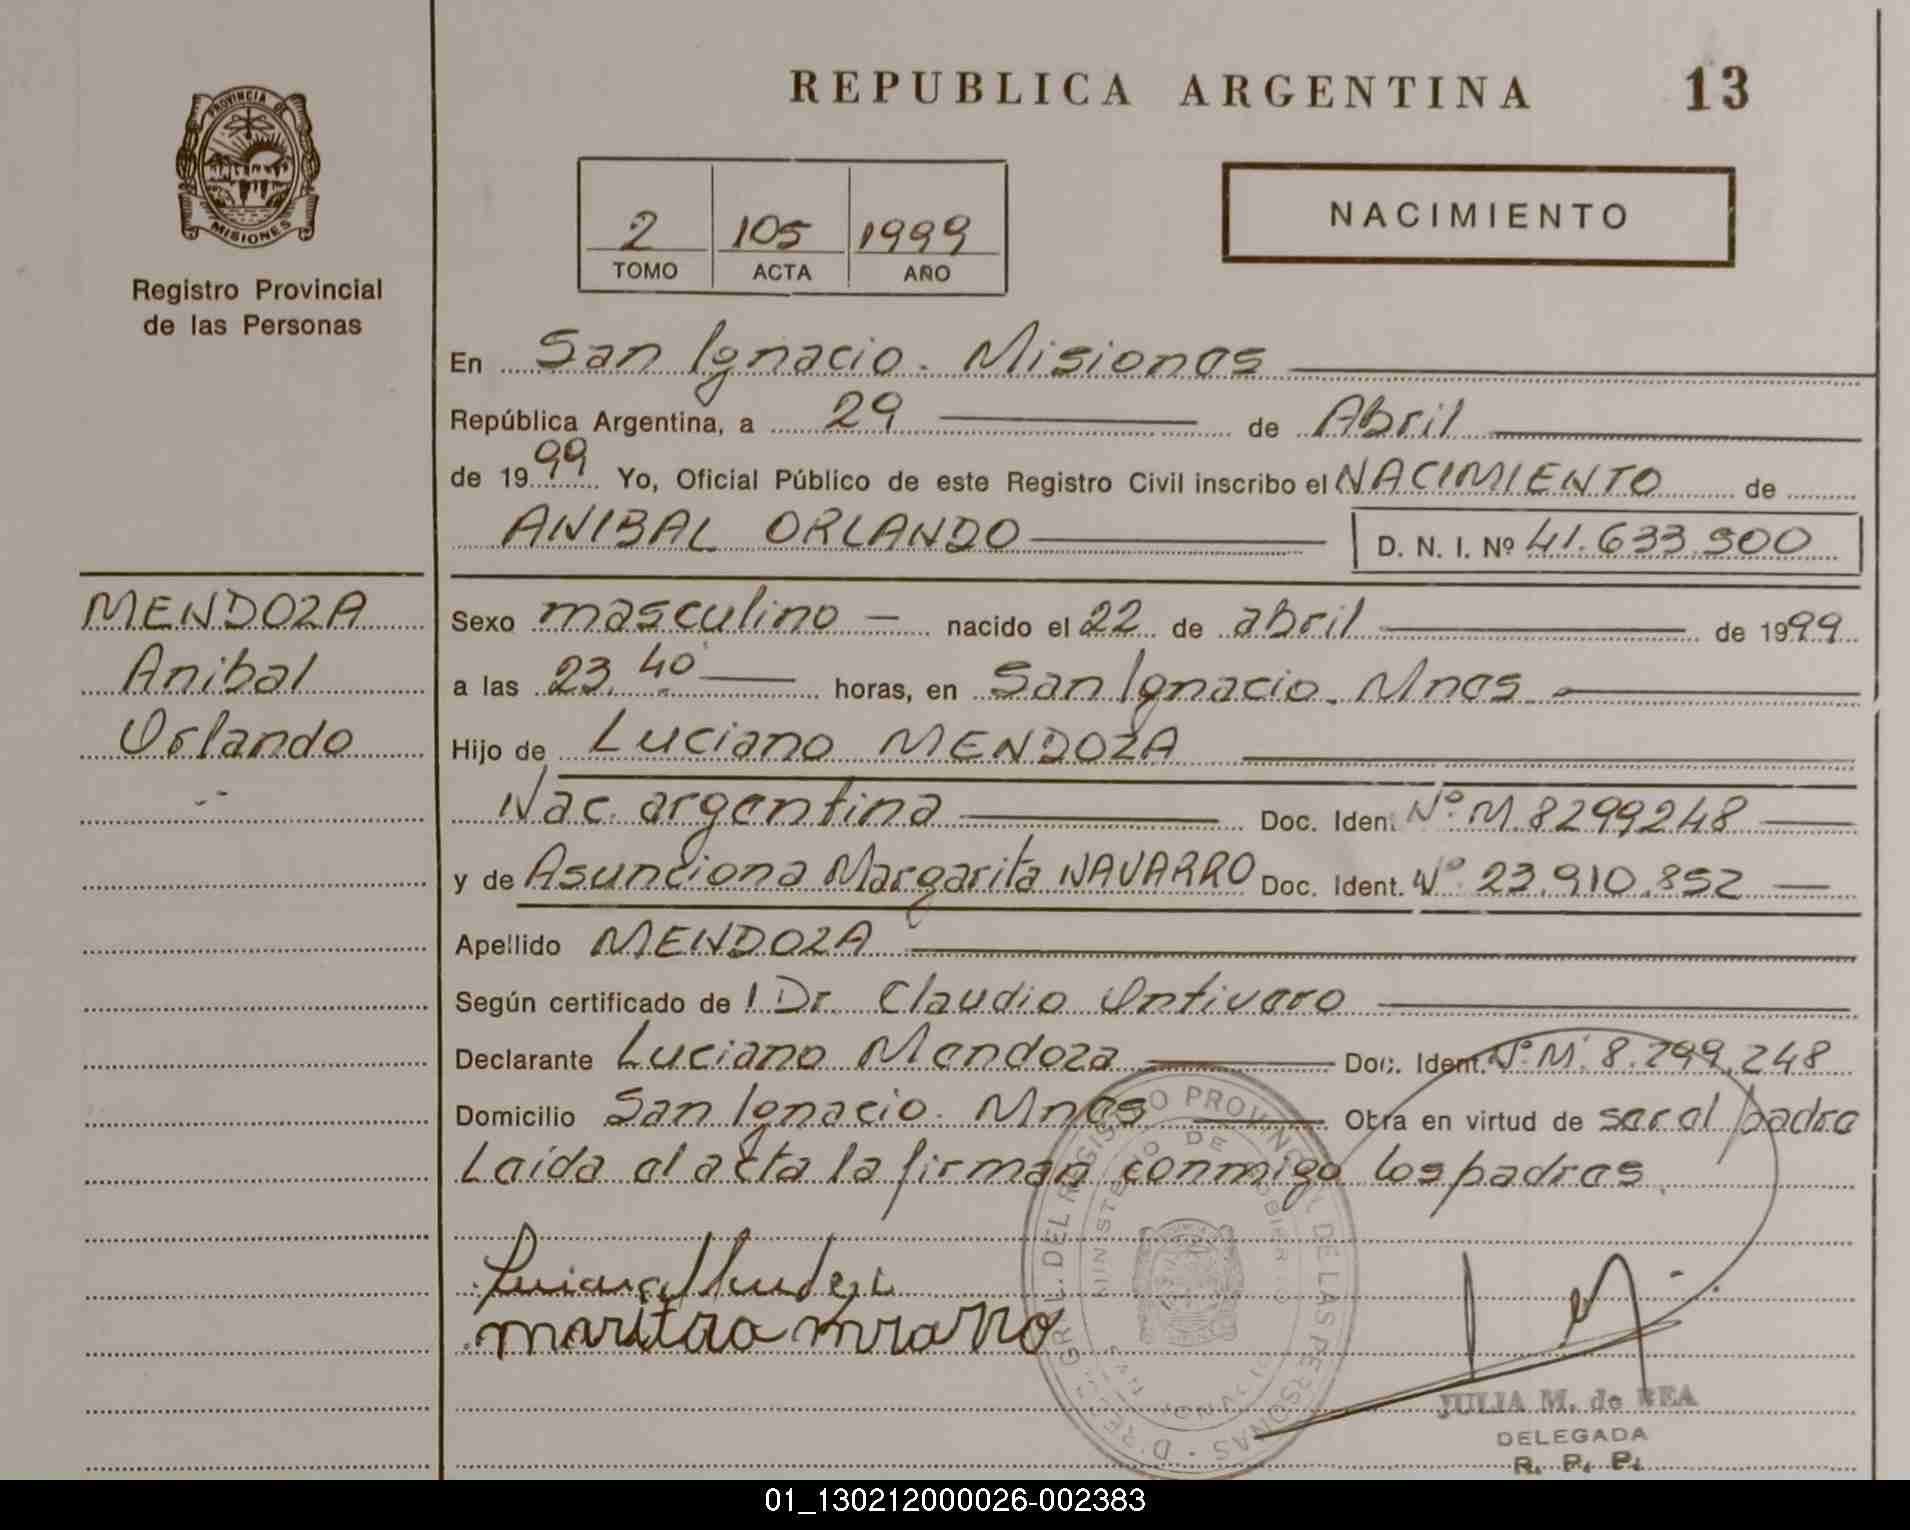 REPUBLICA ARGENTINA 13
PROVINCIA DE
MISIONES
Registro Provincial
de las Personas
2 105 1999
TOMO ACTA AÑO
NACIMIENTO
En San Ignacio. Misiones
República Argentina, a 29 de Abril
de 1999 Yo, Oficial Público de este Registro Civil inscribo el NACIMIENTO de
ANIBAL ORLANDO D. N. I. Nº 41.633.500
MENDOZA
Anibal
Orlando
Sexo masculino — nacido el 22 de abril de 1999
a las 23,40 horas, en San Ignacio. Mnes
Hijo de Luciano MENDOZA
Nac. argentina Doc. Iden. Nº M. 8299248
y de Asunciona Margarita NAVARRO Doc. Ident. Nº 23.910.852
Apellido MENDOZA
Según certificado de l Dr. Claudio Ontivero
Declarante Luciano Mendoza Doc. Ident. Nº M. 8.299.248
Domicilio San Ignacio. Mnes Obra en virtud de ser el padre
Leída el acta la firman conmigo los padres.
DIREC. GRAL. DEL REGISTRO PROVINCIAL DE LAS PERSONAS
MINISTERIO DE GOBIERNO
JULIA M. de REA
DELEGADA
R. P. P.
01_130212000026-002383